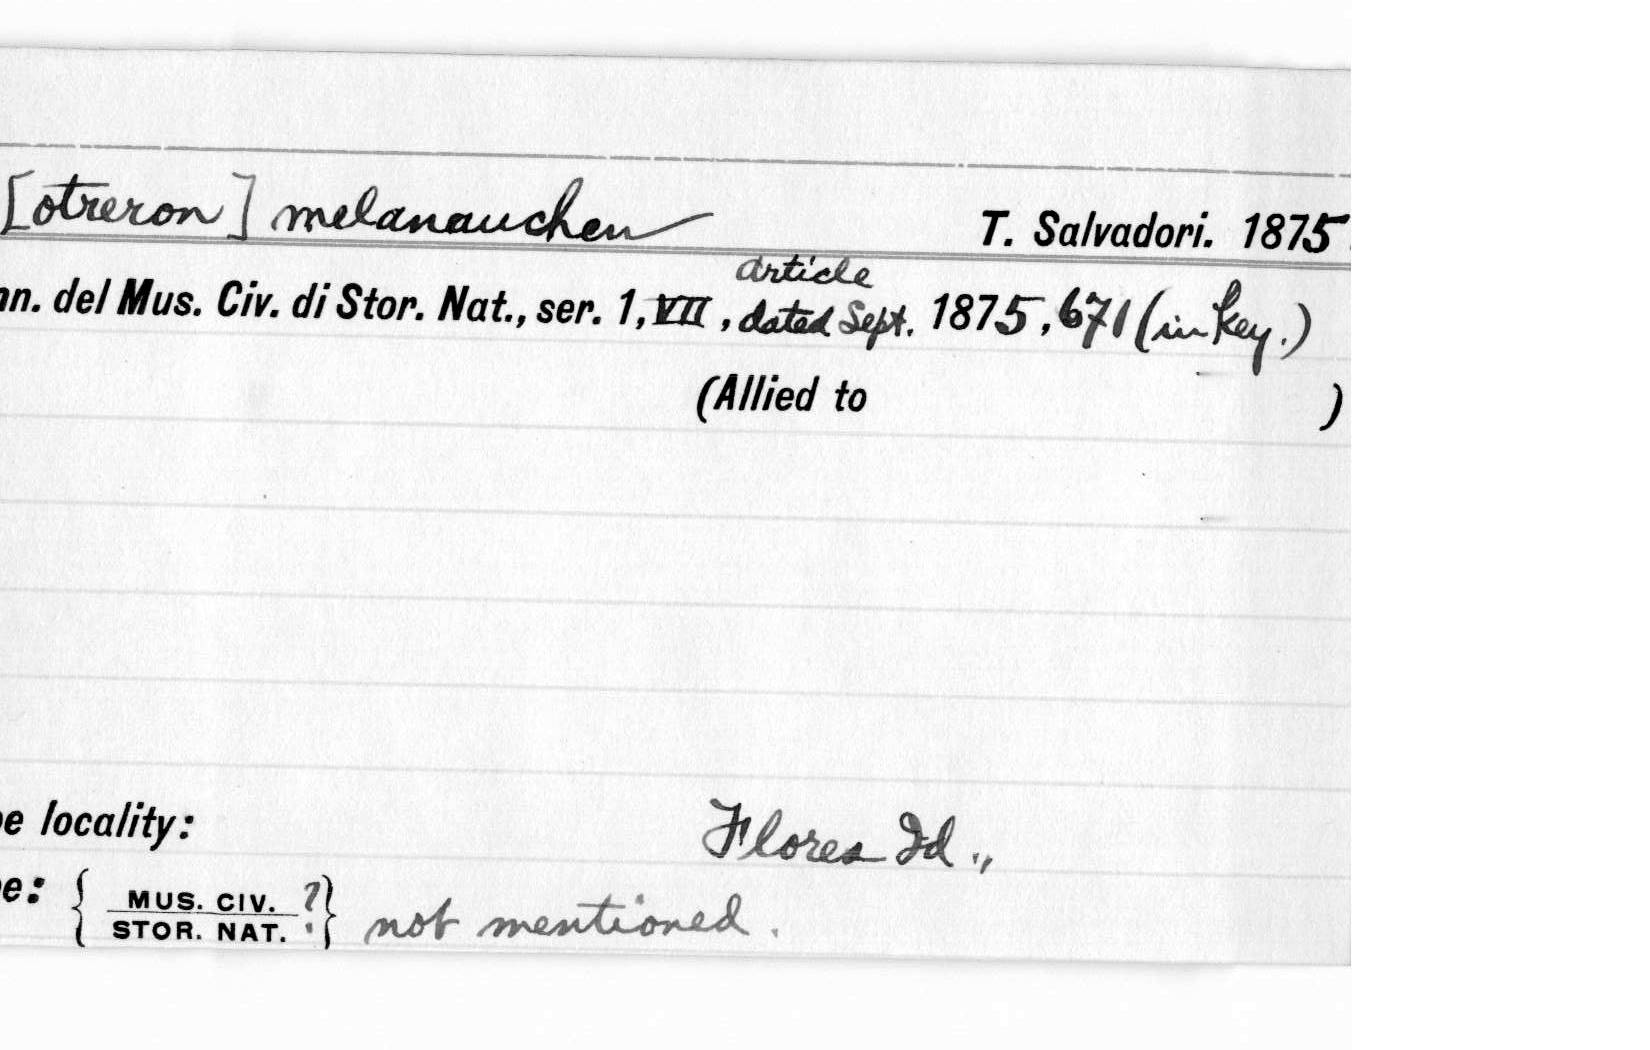 [otreron] melanauchen T. Salvadori. 1875
nn. del Mus. Civ. di Stor. Nat., ser. 1, VII, article dated Sept. 1875, 671 (in key.)
(Allied to )
pe locality: Flores Id.,
e: { MUS. CIV. ? } not mentioned.
STOR. NAT.